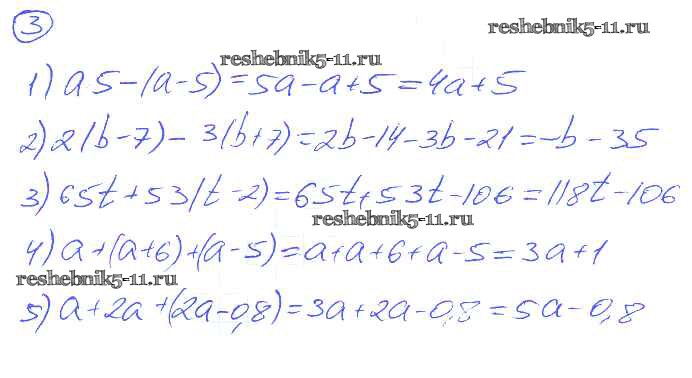 3
reshebnik5-11.ru
reshebnik5-11.ru
1) a5-(a-5)=5a-a+5=4a+5
2) 2(b-7)-3(b+7)=2b-14-3b-21=-b-35
3) 65t+53(t-2)=65t+53t-106=118t-106
reshebnik5-11.ru
4) a+(a+6)+(a-5)=a+a+6+a-5=3a+1
reshebnik5-11.ru
5) a+2a+(2a-0,8)=3a+2a-0,8=5a-0,8